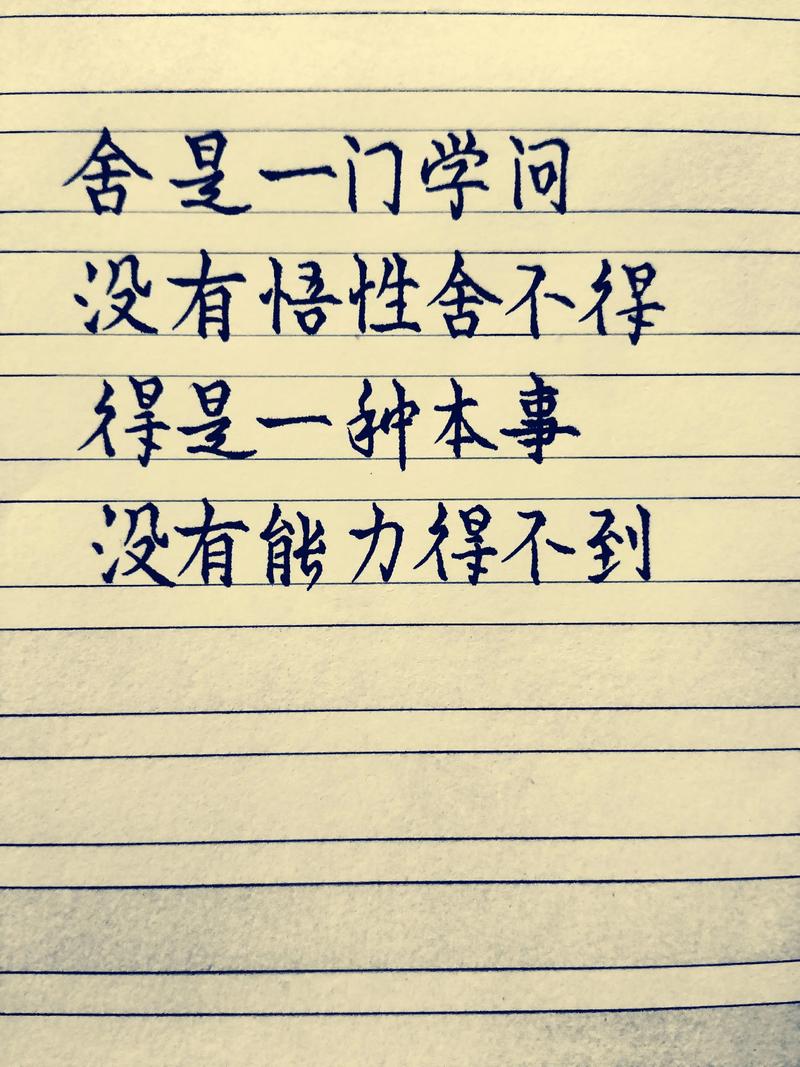 舍是一门学问
没有悟性舍不得
得是一种本事
没有能力得不到